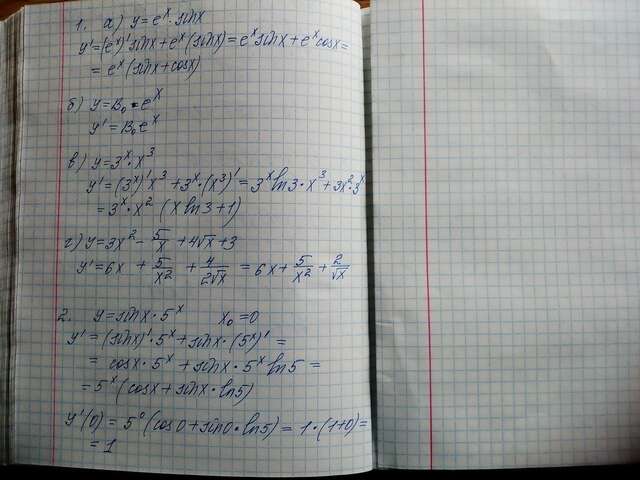 1. а) y = e^x · sinx
y' = (e^x)' sinx + e^x (sinx) = e^x sinx + e^x cosx =
= e^x (sinx + cosx)
б) y = B₀ · e^x
y' = B₀ e^x
в) y = 3^x · x^3
y' = (3^x)' x^3 + 3^x · (x^3)' = 3^x ln3 · x^3 + 3x^2 · 3^x
= 3^x · x^2 (x ln3 + 1)
г) y = 3x^2 - 5/x + 4√x + 3
y' = 6x + 5/x^2 + 4/2√x = 6x + 5/x^2 + 2/√x
2. y = sinx · 5^x x₀ = 0
y' = (sinx)' · 5^x + sinx · (5^x)' =
= cosx · 5^x + sinx · 5^x ln5 =
= 5^x (cosx + sinx · ln5)
y'(0) = 5^0 (cos0 + sin0 · ln5) = 1 · (1+0) =
= 1